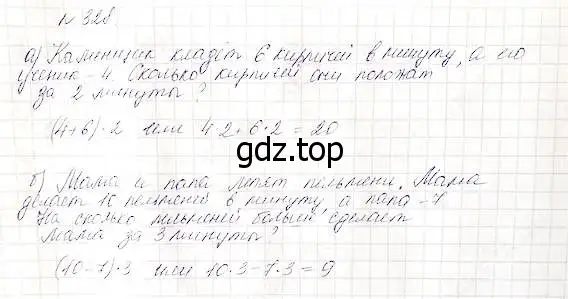 № 328.
а) Каменщик кладёт 6 кирпичей в минуту, а его
ученик - 4. Сколько кирпичей они положат
за 2 минуты?
(4+6)·2 или 4·2+6·2=20
gdz.top
б) Мама и папа лепят пельмени. Мама
делает 10 пельменей в минуту, а папа - 7
На сколько пельменей больше сделает
мама за 3 минуты?
(10-7)·3 или 10·3-7·3=9